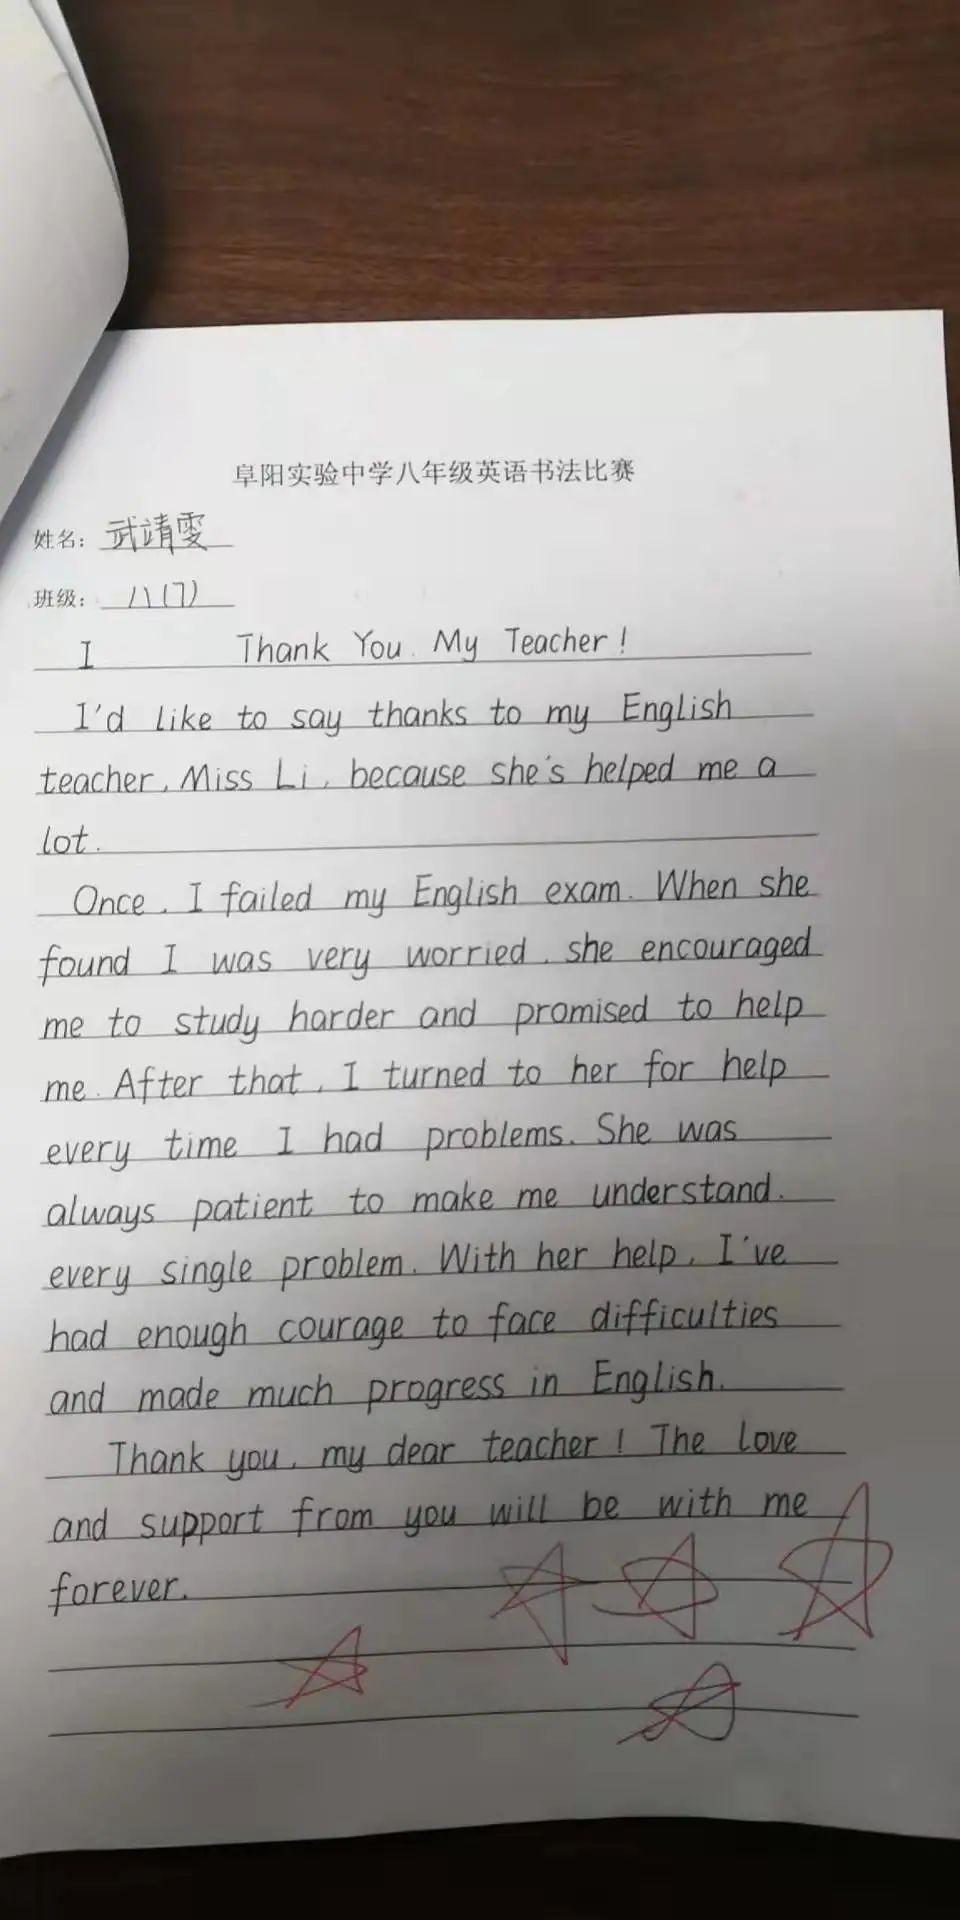 阜阳实验中学八年级英语书法比赛
姓名: 武靖雯
班级: 八(7)
I Thank You. My Teacher!
I'd like to say thanks to my English
teacher, Miss Li, because she's helped me a
lot.
Once, I failed my English exam. When she
found I was very worried, she encouraged
me to study harder and promised to help
me. After that, I turned to her for help
every time I had problems. She was
always patient to make me understand.
every single problem. With her help, I've
had enough courage to face difficulties
and made much progress in English.
Thank you, my dear teacher! The love
and support from you will be with me
forever.